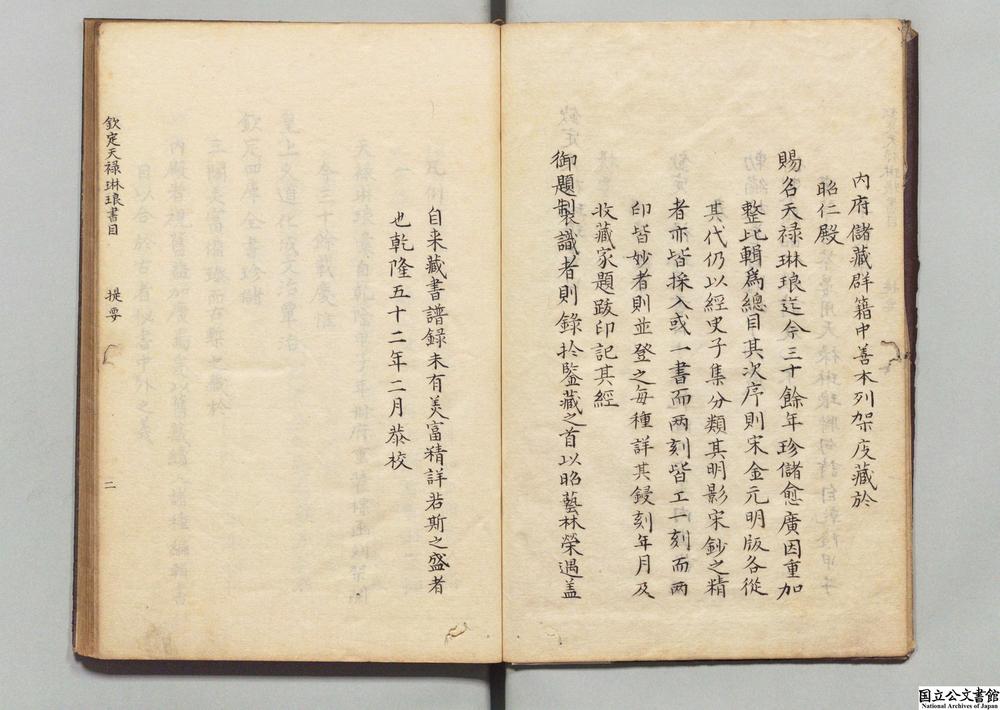 內府儲藏群籍中善本列架庋藏於
昭仁殿
賜名天禄琳琅迄今三十餘年珍儲愈廣因重加
整比輯爲總目其次序則宋金元明版各從
其代仍以經史子集分類其明影宋鈔之精
者亦皆採入或一書而兩刻皆工一刻而兩
印皆妙者則並登之每種詳其鋟刻年月及
收藏家題跋印記其經
御題製識者則錄扵鍳藏之首以昭藝林榮遇盖
自来藏書譜錄未有美富精詳若斯之盛者
也乾隆五十二年二月恭校
欽定天禄琳琅書目 提要 二
国立公文書館
National Archives of Japan